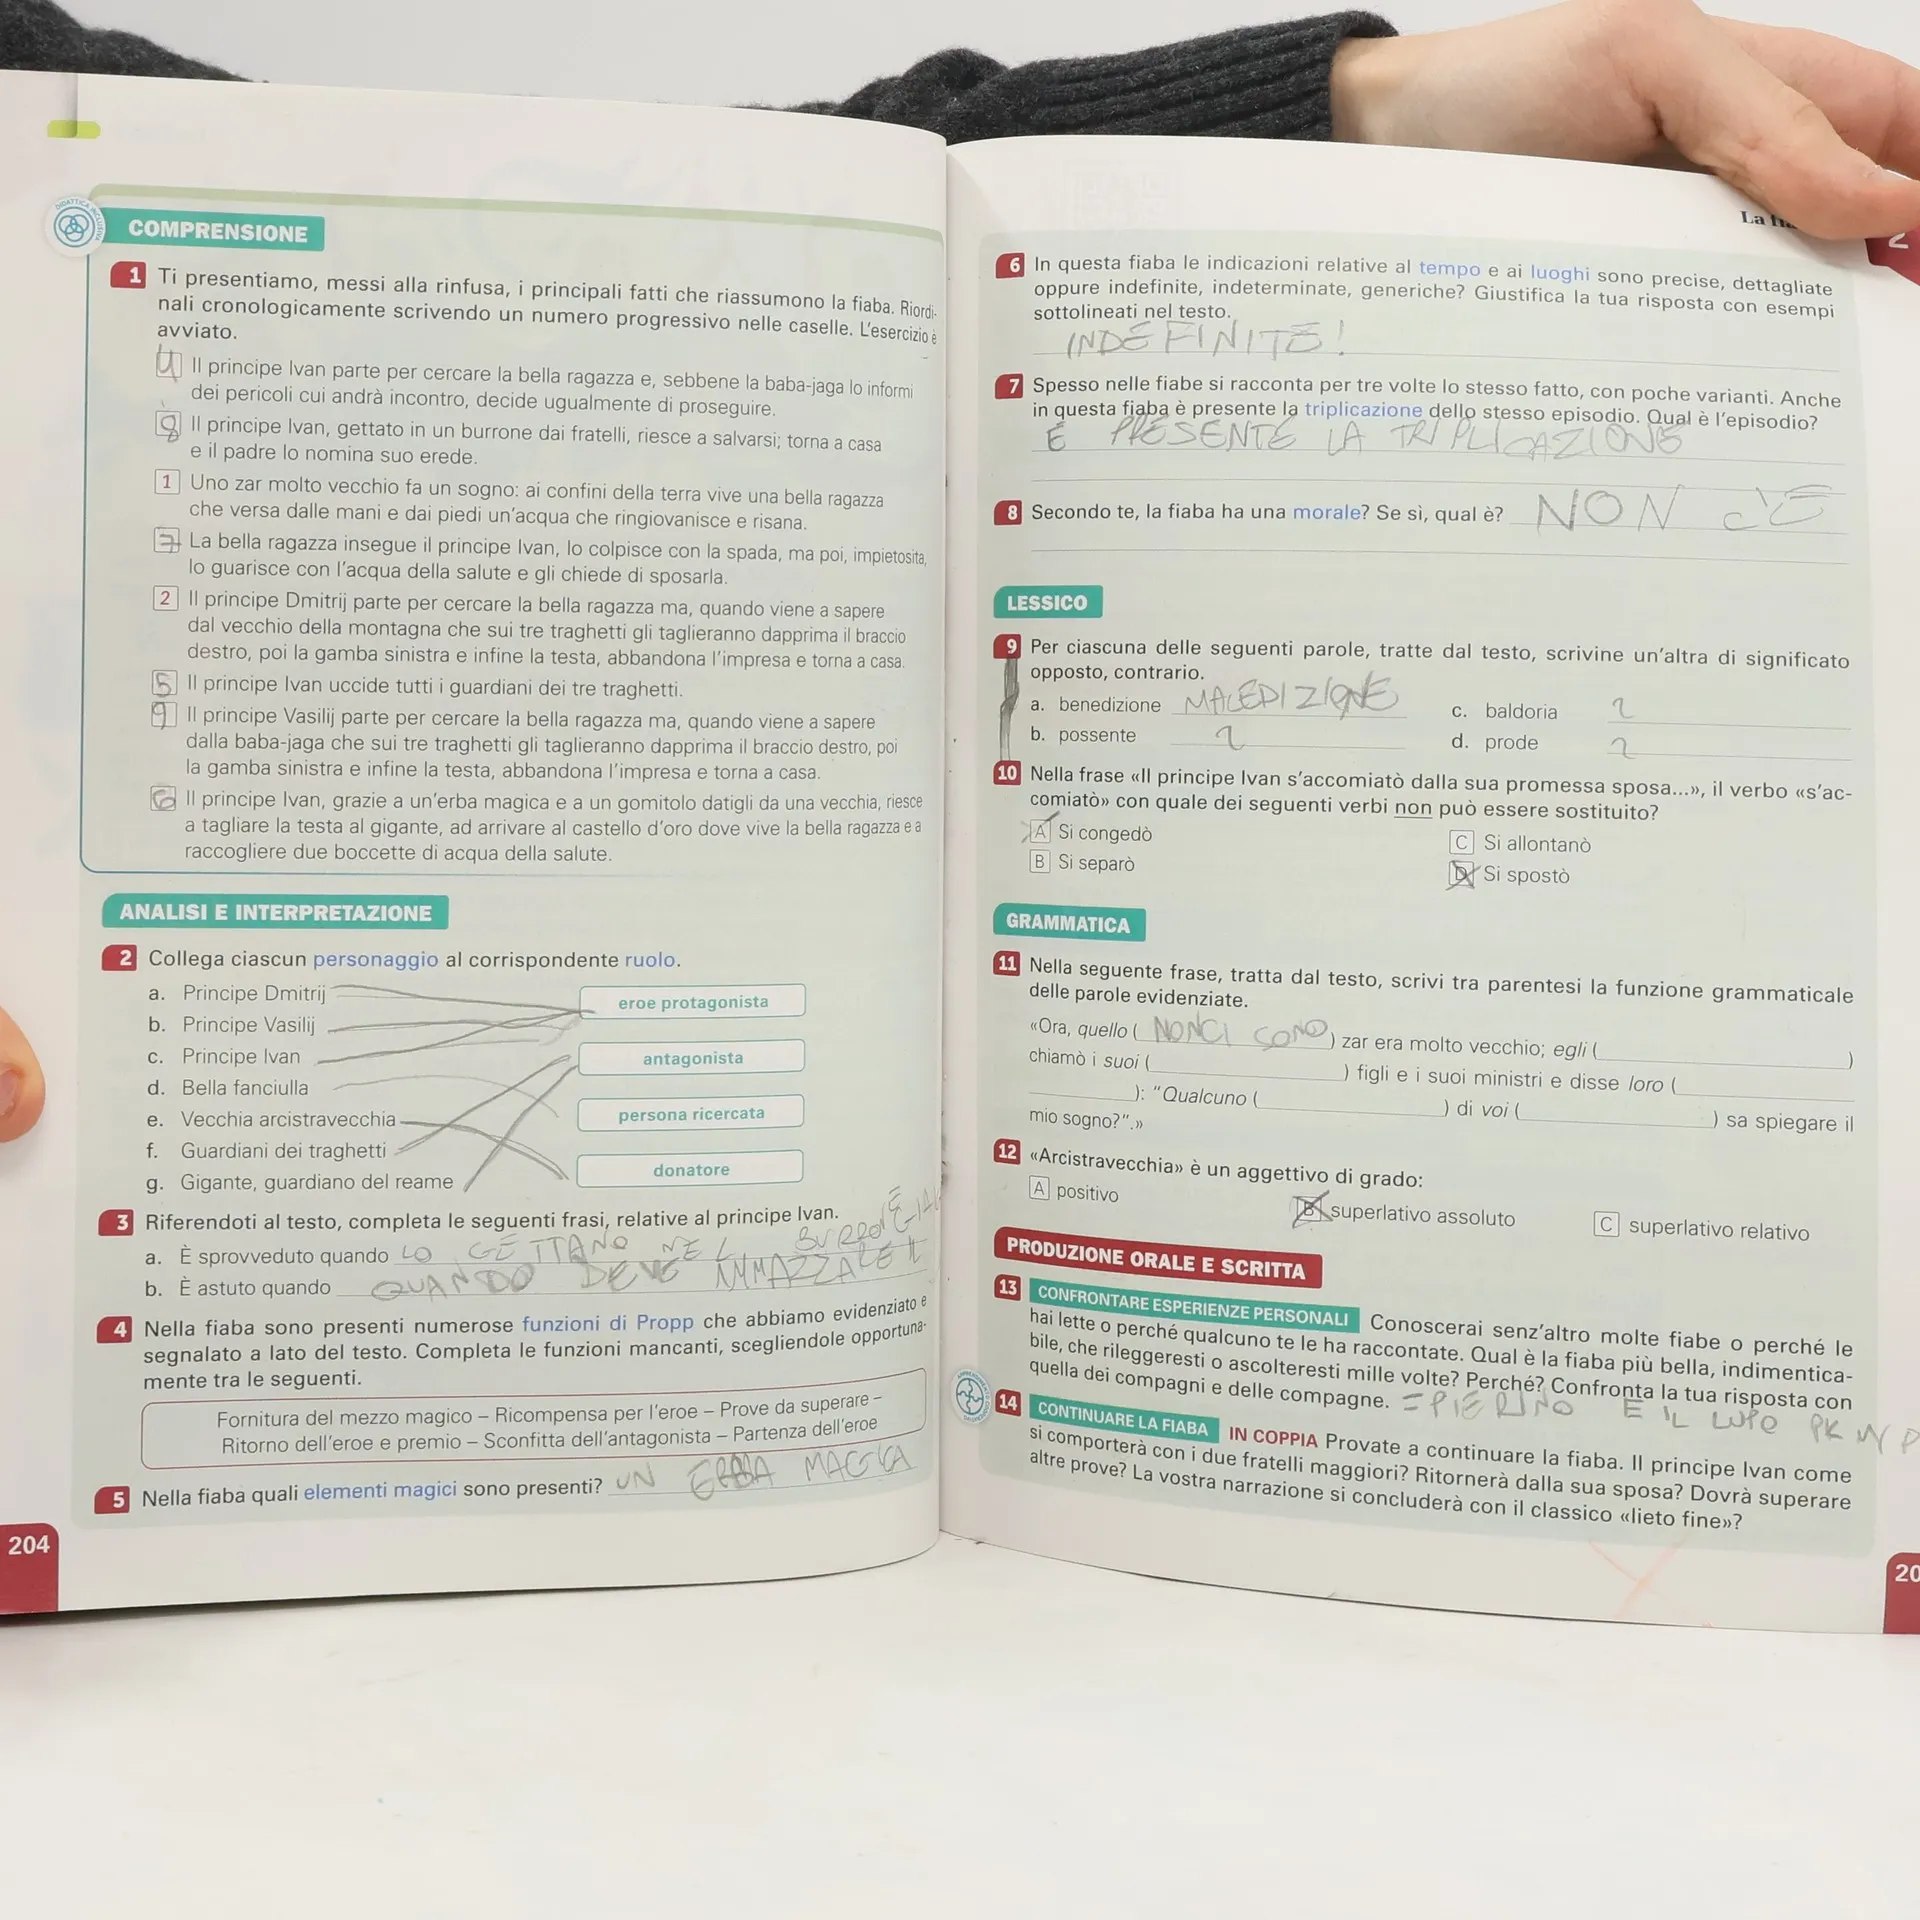 DIDATTICA INCLUSIVA
COMPRENSIONE
1 Ti presentiamo, messi alla rinfusa, i principali fatti che riassumono la fiaba. Riordi-
nali cronologicamente scrivendo un numero progressivo nelle caselle. L'esercizio è
avviato.
4 Il principe Ivan parte per cercare la bella ragazza e, sebbene la baba-jaga lo informi
dei pericoli cui andrà incontro, decide ugualmente di proseguire.
8 Il principe Ivan, gettato in un burrone dai fratelli, riesce a salvarsi; torna a casa
e il padre lo nomina suo erede.
1 Uno zar molto vecchio fa un sogno: ai confini della terra vive una bella ragazza
che versa dalle mani e dai piedi un'acqua che ringiovanisce e risana.
7 La bella ragazza insegue il principe Ivan, lo colpisce con la spada, ma poi, impietosita,
lo guarisce con l'acqua della salute e gli chiede di sposarla.
2 Il principe Dmitrij parte per cercare la bella ragazza ma, quando viene a sapere
dal vecchio della montagna che sui tre traghetti gli taglieranno dapprima il braccio
destro, poi la gamba sinistra e infine la testa, abbandona l'impresa e torna a casa.
5 Il principe Ivan uccide tutti i guardiani dei tre traghetti.
9 Il principe Vasilij parte per cercare la bella ragazza ma, quando viene a sapere
dalla baba-jaga che sui tre traghetti gli taglieranno dapprima il braccio destro, poi
la gamba sinistra e infine la testa, abbandona l'impresa e torna a casa.
6 Il principe Ivan, grazie a un'erba magica e a un gomitolo datigli da una vecchia, riesce
a tagliare la testa al gigante, ad arrivare al castello d'oro dove vive la bella ragazza e a
raccogliere due boccette di acqua della salute.
ANALISI E INTERPRETAZIONE
2 Collega ciascun personaggio al corrispondente ruolo.
a. Principe Dmitrij
b. Principe Vasilij
c. Principe Ivan
d. Bella fanciulla
e. Vecchia arcistravecchia
f. Guardiani dei traghetti
g. Gigante, guardiano del reame
eroe protagonista
antagonista
persona ricercata
donatore
3 Riferendoti al testo, completa le seguenti frasi, relative al principe Ivan.
a. È sprovveduto quando LO GETTANO NEL BURRONE
b. È astuto quando QUANDO DEVE AMMAZZARE IL
4 Nella fiaba sono presenti numerose funzioni di Propp che abbiamo evidenziato e
segnalato a lato del testo. Completa le funzioni mancanti, scegliendole opportuna-
mente tra le seguenti.
Fornitura del mezzo magico – Ricompensa per l'eroe – Prove da superare –
Ritorno dell'eroe e premio – Sconfitta dell'antagonista – Partenza dell'eroe
5 Nella fiaba quali elementi magici sono presenti? UN ERBA MAGICA
204
La
2
6 In questa fiaba le indicazioni relative al tempo e ai luoghi sono precise, dettagliate
oppure indefinite, indeterminate, generiche? Giustifica la tua risposta con esempi
sottolineati nel testo.
INDEFINITE!
7 Spesso nelle fiabe si racconta per tre volte lo stesso fatto, con poche varianti. Anche
in questa fiaba è presente la triplicazione dello stesso episodio. Qual è l'episodio?
È PRESENTE LA TRIPLICAZIONE
8 Secondo te, la fiaba ha una morale? Se sì, qual è? NON C'È
LESSICO
9 Per ciascuna delle seguenti parole, tratte dal testo, scrivine un'altra di significato
opposto, contrario.
a. benedizione MALEDIZIONE c. baldoria ?
b. possente ? d. prode ?
10 Nella frase «Il principe Ivan s'accomiatò dalla sua promessa sposa...», il verbo «s'ac-
comiatò» con quale dei seguenti verbi non può essere sostituito?
A Si congedò C Si allontanò
B Si separò D Si spostò
GRAMMATICA
11 Nella seguente frase, tratta dal testo, scrivi tra parentesi la funzione grammaticale
delle parole evidenziate.
«Ora, quello ( NON CI SONO ) zar era molto vecchio; egli ( )
chiamò i suoi ( ) figli e i suoi ministri e disse loro (
): "Qualcuno ( ) di voi ( ) sa spiegare il
mio sogno?".»
12 «Arcistravecchia» è un aggettivo di grado:
A positivo B superlativo assoluto C superlativo relativo
PRODUZIONE ORALE E SCRITTA
13 CONFRONTARE ESPERIENZE PERSONALI Conoscerai senz'altro molte fiabe o perché le
hai lette o perché qualcuno te le ha raccontate. Qual è la fiaba più bella, indimentica-
bile, che rileggeresti o ascolteresti mille volte? Perché? Confronta la tua risposta con
quella dei compagni e delle compagne. = PIERINO E IL LUPO
14 CONTINUARE LA FIABA IN COPPIA Provate a continuare la fiaba. Il principe Ivan come
si comporterà con i due fratelli maggiori? Ritornerà dalla sua sposa? Dovrà superare
altre prove? La vostra narrazione si concluderà con il classico «lieto fine»?
20